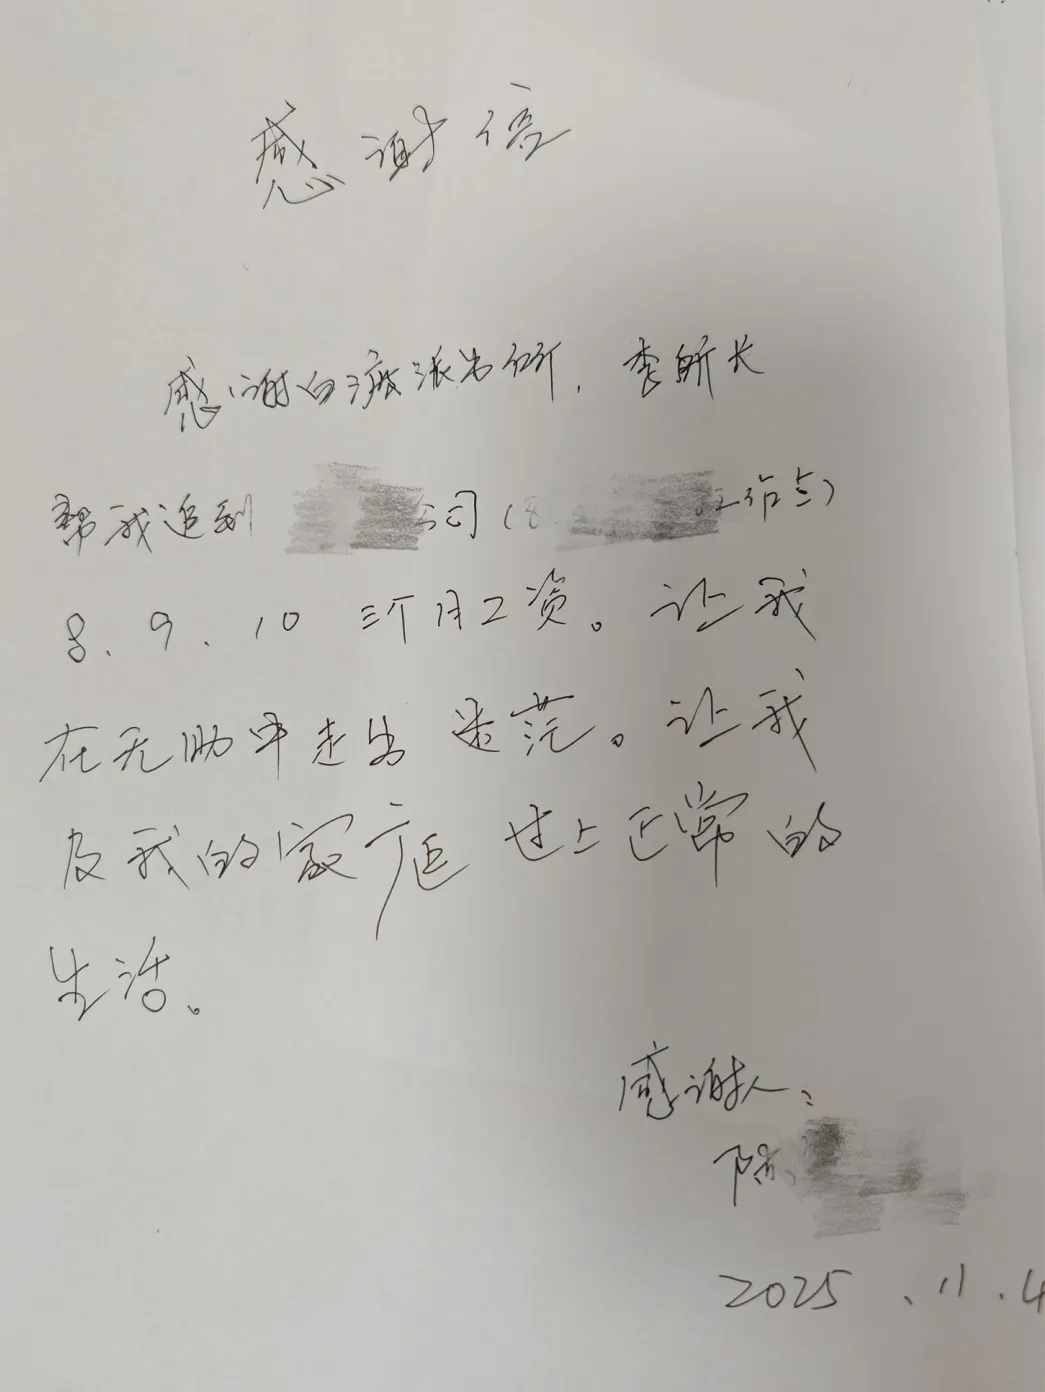 感谢信
感谢白渡派出所,李所长
帮我追到 公司(8 工作点)
8、9、10 三个月工资。让我
在无助中走出迷茫。让我
及我的家庭过上正常的
生活。
感谢人:
陈
2025.11.4